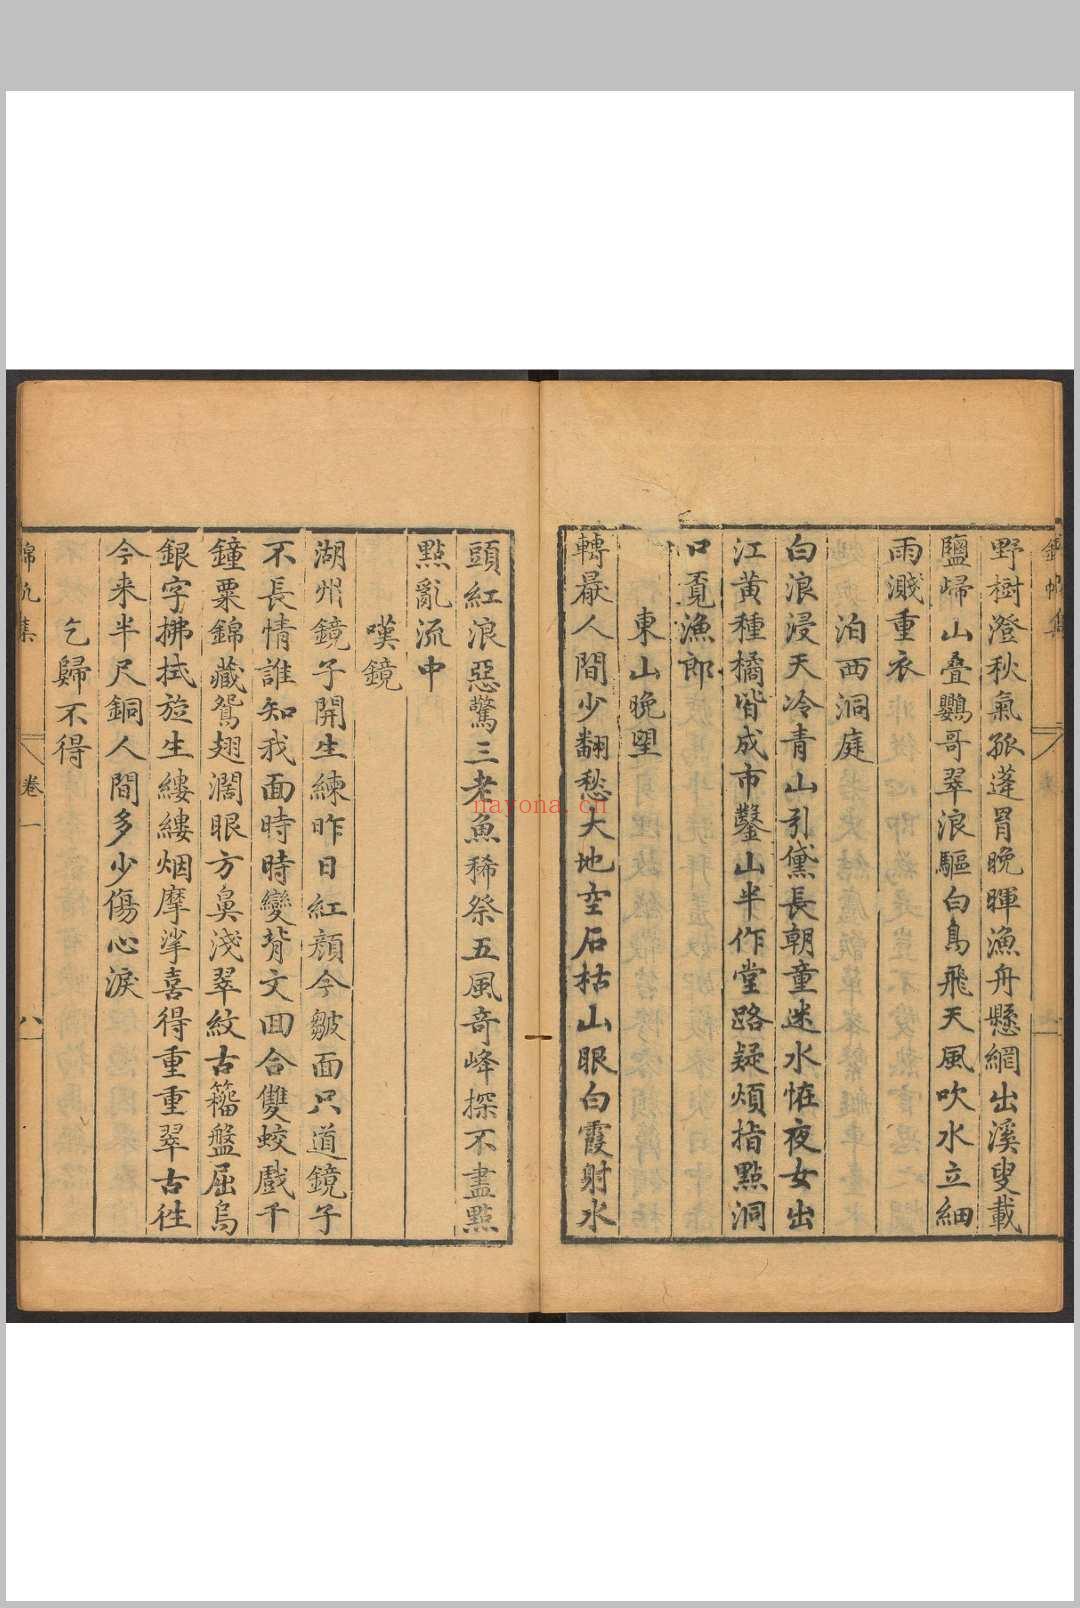 野樹澄秋氣孤蓬罥晚暉漁舟懸網出溪叟載
鹽歸山叠鸚哥翠浪驅白鳥飛天風吹水立細
雨濺重衣
泊西洞庭
白浪浸天冷青山引黛長朝童迷水恠夜女出
江黃種橘皆成市鑿山半作堂路疑煩指點洞
口覔漁郎
東山晚望
轉嚴人間少翻愁大地空石枯山眼白霞射水
頭紅浪惡驚三老魚稀祭五風奇峰探不盡點
點亂流中
嘆鏡
湖州鏡子開生練昨日紅顏今皺面只道鏡子
不長情誰知我面時時變背文囬合雙蛟戲千
鐘粟錦藏鴛翅濶眼方鼻淺翠紋古籀盤屈烏
銀字拂拭旋生縷縷烟摩挲喜得重重翠古徃
今来半尺銅人間多少傷心淚
乞歸不得
錦帆集
卷一
八
nayona.cn